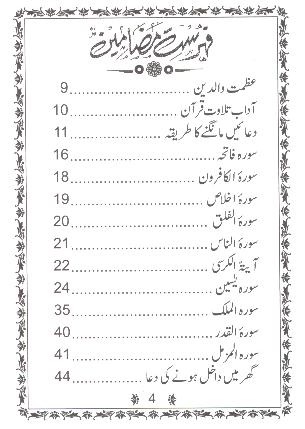 فہرست مضامین
عظمت والدین 9
آداب تلاوت قرآن 10
دعائیں مانگنے کا طریقہ 11
سورہ فاتحہ 16
سورۃ الکافرون 18
سورۃ اخلاص 19
سورۃ الفلق 20
سورۃ الناس 21
آیۃ الکرسی 22
سورہ یٰسین 24
سورہ الملک 35
سورۃ القدر 40
سورہ المزمل 41
گھر میں داخل ہونے کی دعا 44
4